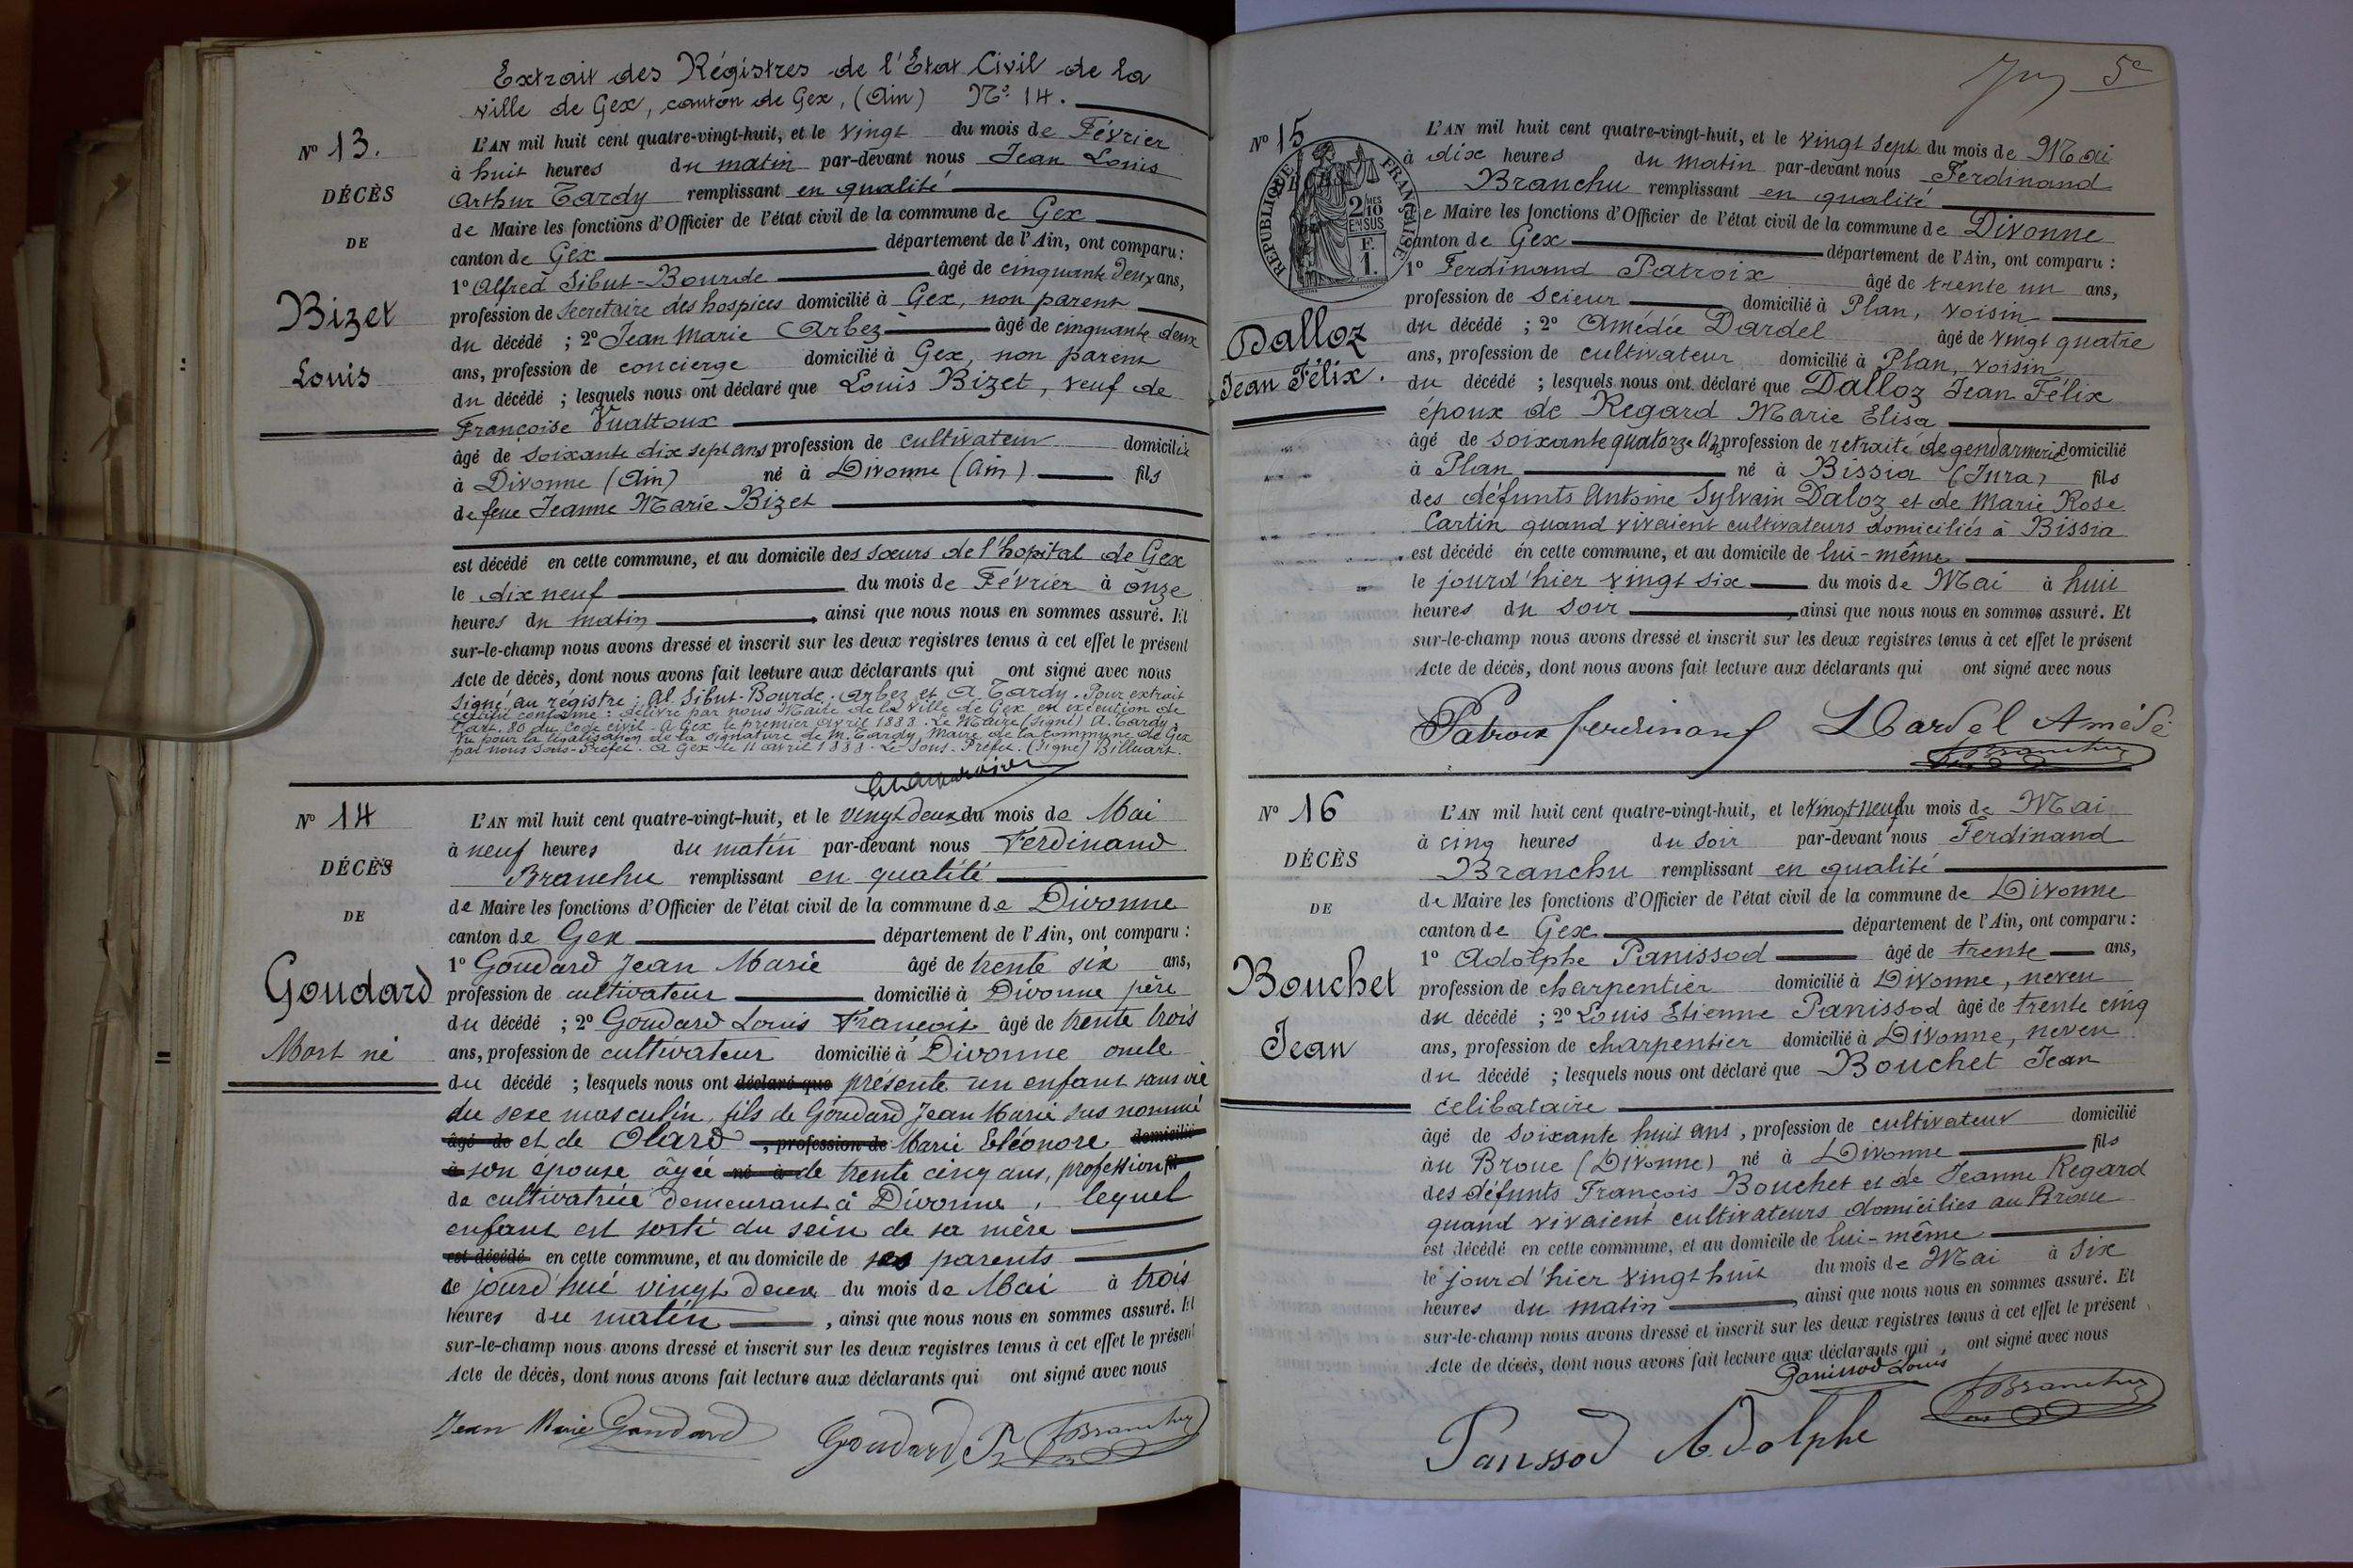 Extrait des Régistres de l'Etat Civil de la
ville de Gex, canton de Gex, (Ain) N° 14.
N° 13.
DÉCÈS
DE
Bizet
Louis
L'AN mil huit cent quatre-vingt-huit, et le vingt du mois de Février
à huit heures du matin par-devant nous Jean Louis
Arthur Tardy remplissant en qualité
de Maire les fonctions d'Officier de l'état civil de la commune de Gex
canton de Gex département de l'Ain, ont comparu :
1° Alfred Sibut-Bourde âgé de cinquante deux ans,
profession de Secretaire des hospices domicilié à Gex, non parent
du décédé ; 2° Jean Marie Arbez âgé de cinquante deux
ans, profession de concierge domicilié à Gex, non parent
du décédé ; lesquels nous ont déclaré que Louis Bizet, veuf de
Françoise Vualtoux
âgé de soixante dix sept ans profession de cultivateur domicilié
à Divonne (Ain) né à Divonne (Ain) fils
de feue Jeanne Marie Bizet
est décédé en cette commune, et au domicile des sœurs de l'hopital de Gex
le dix neuf du mois de Février à onze
heures du matin ainsi que nous nous en sommes assuré. Et
sur-le-champ nous avons dressé et inscrit sur les deux registres tenus à cet effet le présent
Acte de décès, dont nous avons fait lecture aux déclarants qui ont signé avec nous
Signé au régistre : Al. Sibut-Bourde. Arbez et A. Tardy. Pour extrait
certifié conforme : délivré par nous Maire de la Ville de Gex en exécution de
l'art. 80 du Code civil. A Gex le premier avril 1888. Le Maire (signé) A. Tardy.
Vu pour la légalisation de la signature de M. Tardy, Maire de la commune de Gex
par nous Sous-Préfet. A Gex le 11 avril 1888. Le Sous-Préfet. (Signé) Billuart.
N° 14
DÉCÈS
DE
Goudard
Mort né
L'AN mil huit cent quatre-vingt-huit, et le vingt deux du mois de Mai
à neuf heures du matin par-devant nous Ferdinand
Branchu remplissant en qualité
de Maire les fonctions d'Officier de l'état civil de la commune de Divonne
canton de Gex département de l'Ain, ont comparu :
1° Goudard Jean Marie âgé de trente six ans,
profession de cultivateur domicilié à Divonne père
du décédé ; 2° Goudard Louis François âgé de trente trois
ans, profession de cultivateur domicilié à Divonne oncle
du décédé ; lesquels nous ont déclaré que présenté un enfant sans vie
du sexe masculin, fils de Goudard Jean Marie sus nommé
âgé de et de Olard , profession de Marie Eléonore domicilié
à son épouse âgée né à de trente cinq ans, profession fils
de cultivatrice demeurant à Divonne, lequel
enfant est sorti du sein de sa mère
est décédé en cette commune, et au domicile de ses parents
le jourd'hui vingt deux du mois de Mai à trois
heures du matin , ainsi que nous nous en sommes assuré. Et
sur-le-champ nous avons dressé et inscrit sur les deux registres tenus à cet effet le présent
Acte de décès, dont nous avons fait lecture aux déclarants qui ont signé avec nous
Jean Marie Goudard Goudard Fs FBranchu
5e
N° 15
RÉPUBLIQUE FRANÇAISE
2/10 MES
EN SUS
F.
1.
Dalloz
Jean Félix.
L'AN mil huit cent quatre-vingt-huit, et le vingt sept du mois de Mai
à dix heures du matin par-devant nous Ferdinand
Branchu remplissant en qualité
de Maire les fonctions d'Officier de l'état civil de la commune de Divonne
canton de Gex département de l'Ain, ont comparu :
1° Ferdinand Patroix âgé de trente un ans,
profession de scieur domicilié à Plan, voisin
du décédé ; 2° Amédée Dardel âgé de vingt quatre
ans, profession de cultivateur domicilié à Plan, voisin
du décédé ; lesquels nous ont déclaré que Dalloz Jean Félix
époux de Regard Marie Elisa
âgé de soixante quatorze ans profession de retraité de gendarmerie domicilié
à Plan né à Bissia (Jura) fils
des défunts Antoine Sylvain Daloz et de Marie Rose
Cartin quand vivaient cultivateurs domiciliés à Bissia
est décédé en cette commune, et au domicile de lui-même
le jourd'hier vingt six du mois de Mai à huit
heures du soir , ainsi que nous nous en sommes assuré. Et
sur-le-champ nous avons dressé et inscrit sur les deux registres tenus à cet effet le présent
Acte de décès, dont nous avons fait lecture aux déclarants qui ont signé avec nous
Patroix ferdinand Dardel Amédé
FBranchu
N° 16
DÉCÈS
DE
Bouchet
Jean
L'AN mil huit cent quatre-vingt-huit, et le vingt-neuf du mois de Mai
à cinq heures du soir par-devant nous Ferdinand
Branchu remplissant en qualité
de Maire les fonctions d'Officier de l'état civil de la commune de Divonne
canton de Gex département de l'Ain, ont comparu :
1° Adolphe Panissod âgé de trente ans,
profession de charpentier domicilié à Divonne, neveu
du décédé ; 2° Louis Etienne Panissod âgé de trente cinq
ans, profession de charpentier domicilié à Divonne, neveu
du décédé ; lesquels nous ont déclaré que Bouchet Jean
célibataire
âgé de soixante huit ans, profession de cultivateur domicilié
au Broue (Divonne) né à Divonne fils
des défunts François Bouchet et de Jeanne Regard
quand vivaient cultivateurs domiciliés au Broue
est décédé en cette commune, et au domicile de lui-même
le jourd'hier vingt huit du mois de Mai à six
heures du matin , ainsi que nous nous en sommes assuré. Et
sur-le-champ nous avons dressé et inscrit sur les deux registres tenus à cet effet le présent
Acte de décès, dont nous avons fait lecture aux déclarants qui , ont signé avec nous
Panissod Louis
FBranchu
Panssod Adolphe